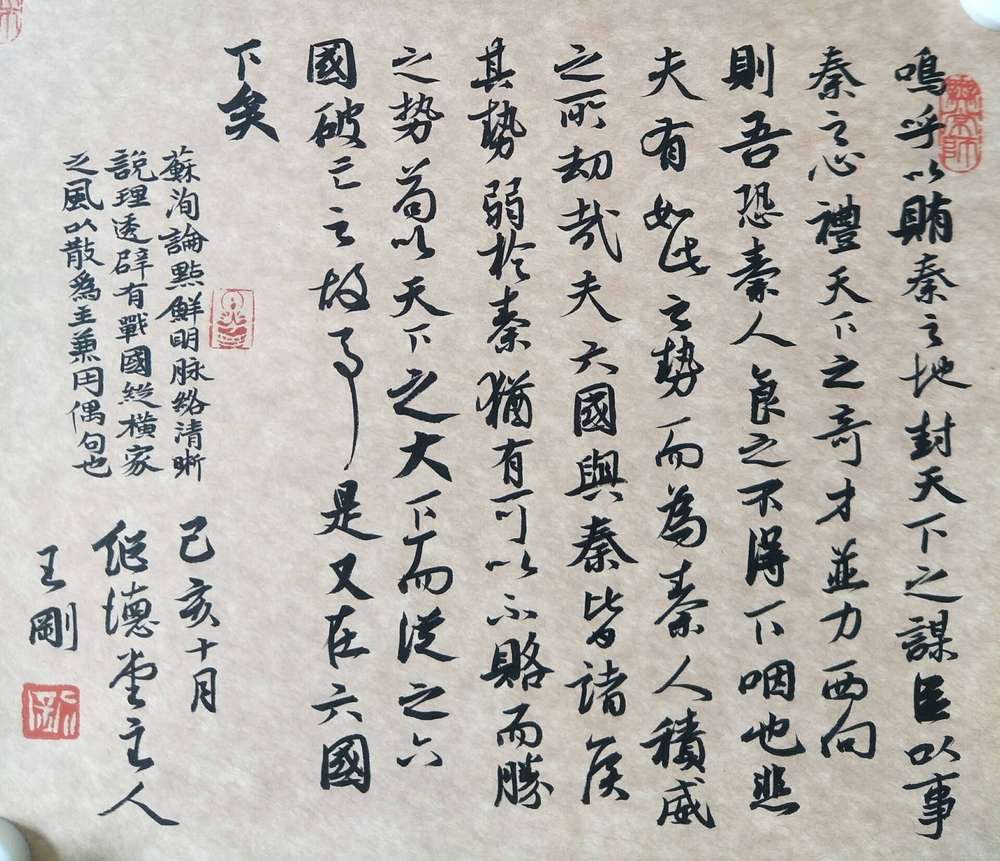 嗚呼以賄秦之地封天下之謀臣以事
秦之心禮天下之奇才並力西向
則吾恐秦人食之不得下咽也悲
夫有如此之勢而為秦人積威
之所劫哉夫六國與秦皆諸侯
其勢弱於秦猶有可以不賂而勝
之勢苟以天下之大下而從之六
國破亡之故事是又在六國
下矣
蘇洵論點鮮明脉絡清晰
說理透辟有戰國縱橫家
之風以散為主兼用偶句也
己亥十月
德堂主人
王剛